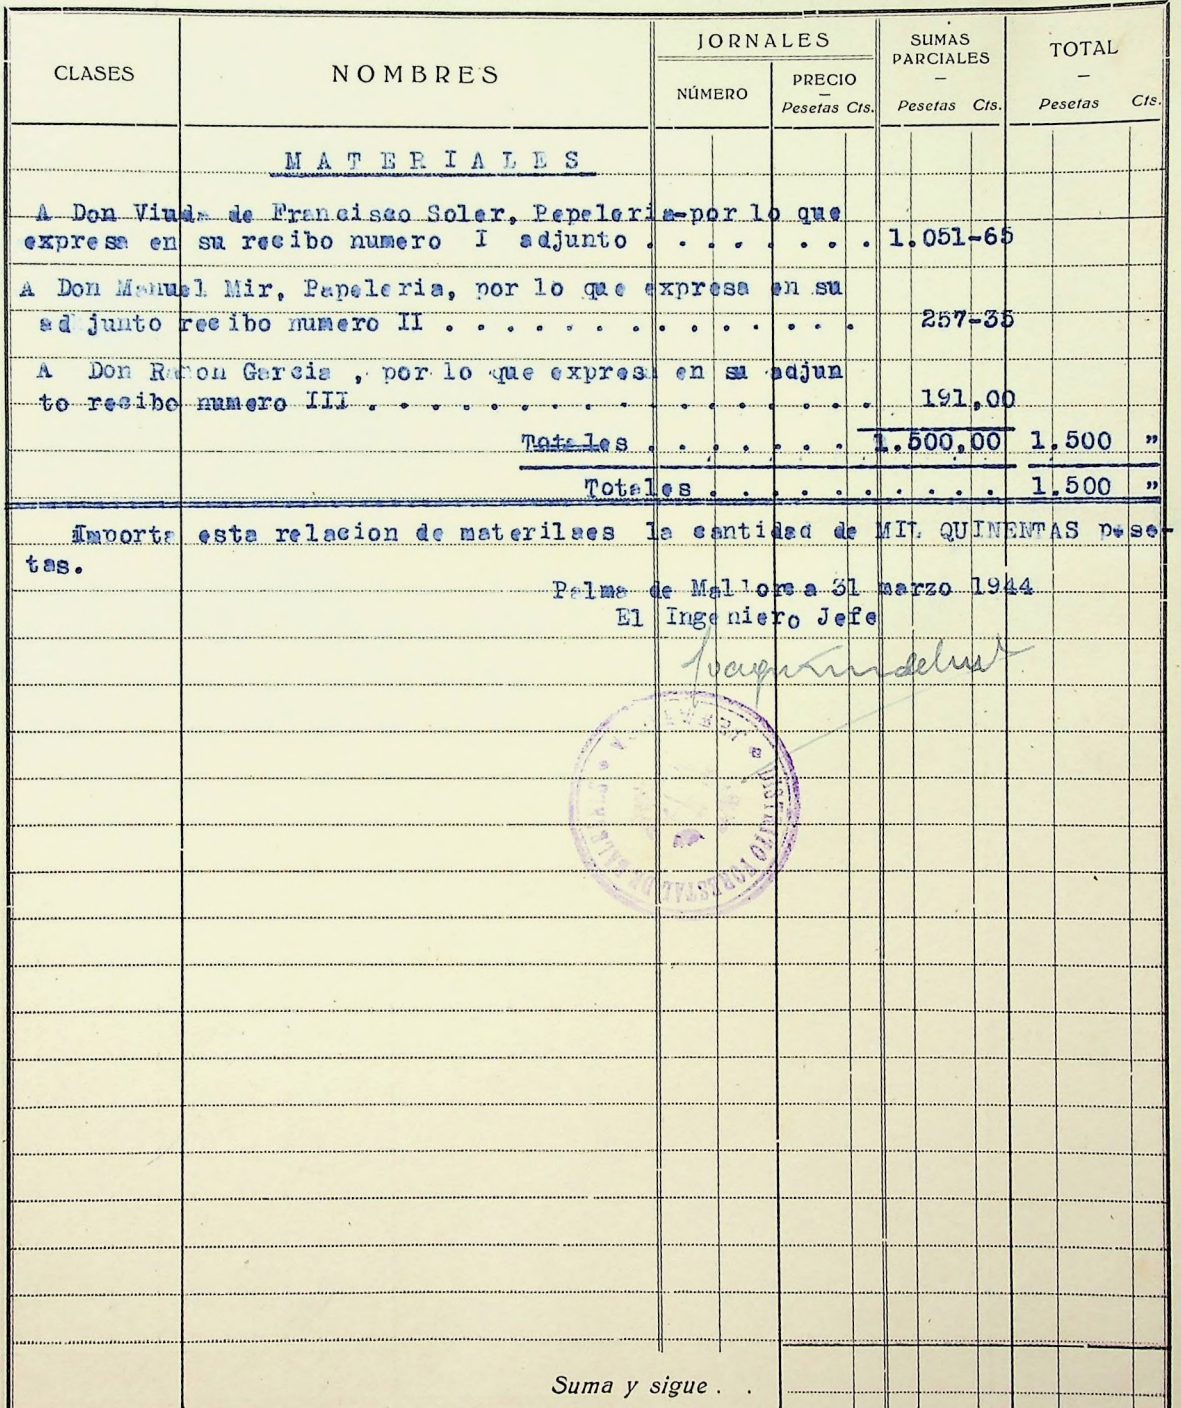 CLASES NOMBRES JORNALES SUMAS PARCIALES TOTAL
NÚMERO PRECIO
Pesetas Cts. Pesetas Cts. Pesetas Cts.
MATERIALES
A Don Viuda de Francisco Soler, Pepeleria-por lo que
expresa en su recibo numero I adjunto . . . . . . . 1.051-65
A Don Manuel Mir, Papeleria, por lo que expresa en su
ad junto recibo numero II . . . . . . . . . . . . . . 257-35
A Don Ramon Garcia , por lo que expresa en su adjun
to recibo numero III . . . . . . . . . . . . . . . . 191,00
Totales . . . . . . . 1.500,00 1.500 "
Totales . . . . . . . . . . 1.500 "
Importa esta relacion de materilaes la cantidad de MIL QUINENTAS pese-
tas.
Palma de Mallorca 31 marzo 1944
El Ingeniero Jefe
JEFATURA
DISTRITO FORESTAL DE BALEARES
Suma y sigue . .